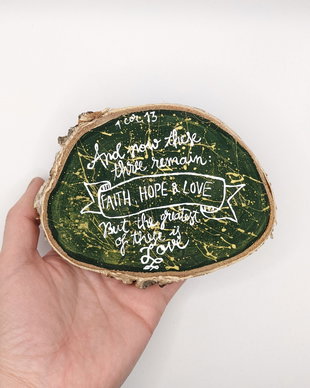 1 cor. 13
And now these
three remain:
FAITH, HOPE & LOVE
But the greatest
of these is
Love